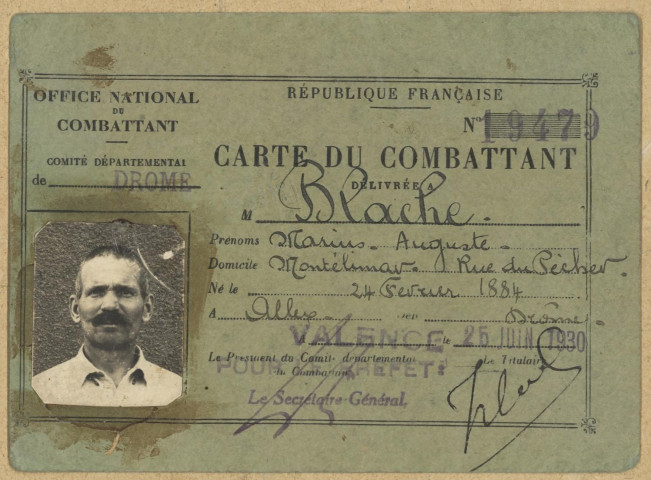 OFFICE NATIONAL
DU
COMBATTANT
COMITÉ DÉPARTEMENTAL
de DROME
RÉPUBLIQUE FRANÇAISE
N° 19479
CARTE DU COMBATTANT
DÉLIVRÉE A
M Blache.
Prénoms Marius - Auguste -
Domicile Montélimar. Rue du Pêcher.
Né le 24 Février 1884
A Allex en Drôme
VALENCE le 25 JUIN 1930
Le Président du Comité départemental Le Titulaire
POUR LE PRÉFET:
du Combattant
Le Secrétaire Général,